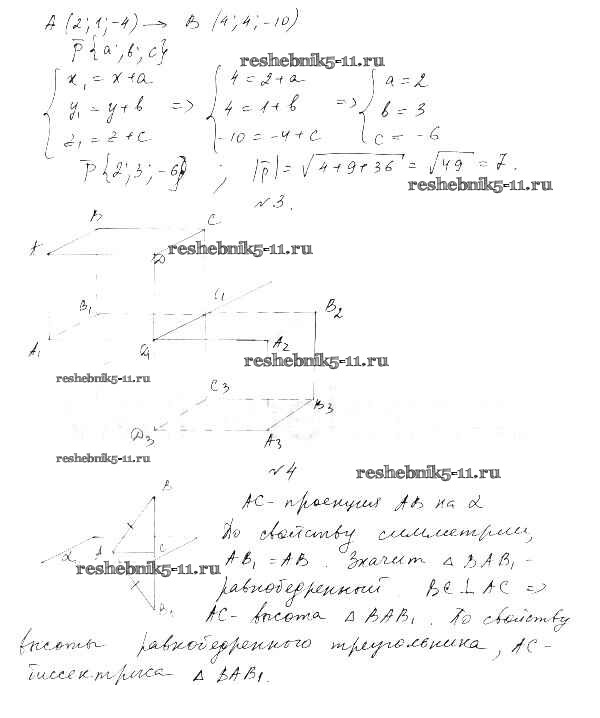 A (2; 1; -4) → B (4; 4; -10)
p̅ {a; b; c}
reshebnik5-11.ru
{ x₁ = x+a { 4 = 2+a { a = 2
y₁ = y+b => 4 = 1+b => b = 3
z₁ = z+c -10 = -4+c c = -6
p̅ {2; 3; -6} ; |p̅| = √4+9+36 = √49 = 7.
reshebnik5-11.ru
№3.
B C
A D reshebnik5-11.ru
B₁ C₁ B₂
A₁ D₁ A₂
reshebnik5-11.ru
reshebnik5-11.ru
C₃ B₃
D₃ A₃
reshebnik5-11.ru
№4
reshebnik5-11.ru
B
AC - проекция AB на α
По свойству симметрии,
α A C
AB₁ = AB. Значит △ BAB₁ -
reshebnik5-11.ru
равнобедренный. BC ⊥ AC =>
B₁
AC - высота △ BAB₁. По свойству
высоты равнобедренного треугольника, AC -
биссектриса △ BAB₁.